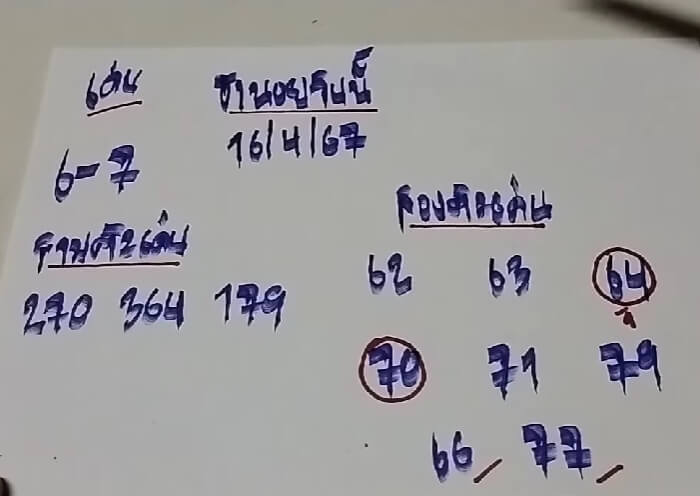 เด่น
ฮานอยวันนี้
16/4/67
6-7
สามตัวเด่น
270 364 179
สองตัวเด่น
62 63 64
70 71 79
66 77